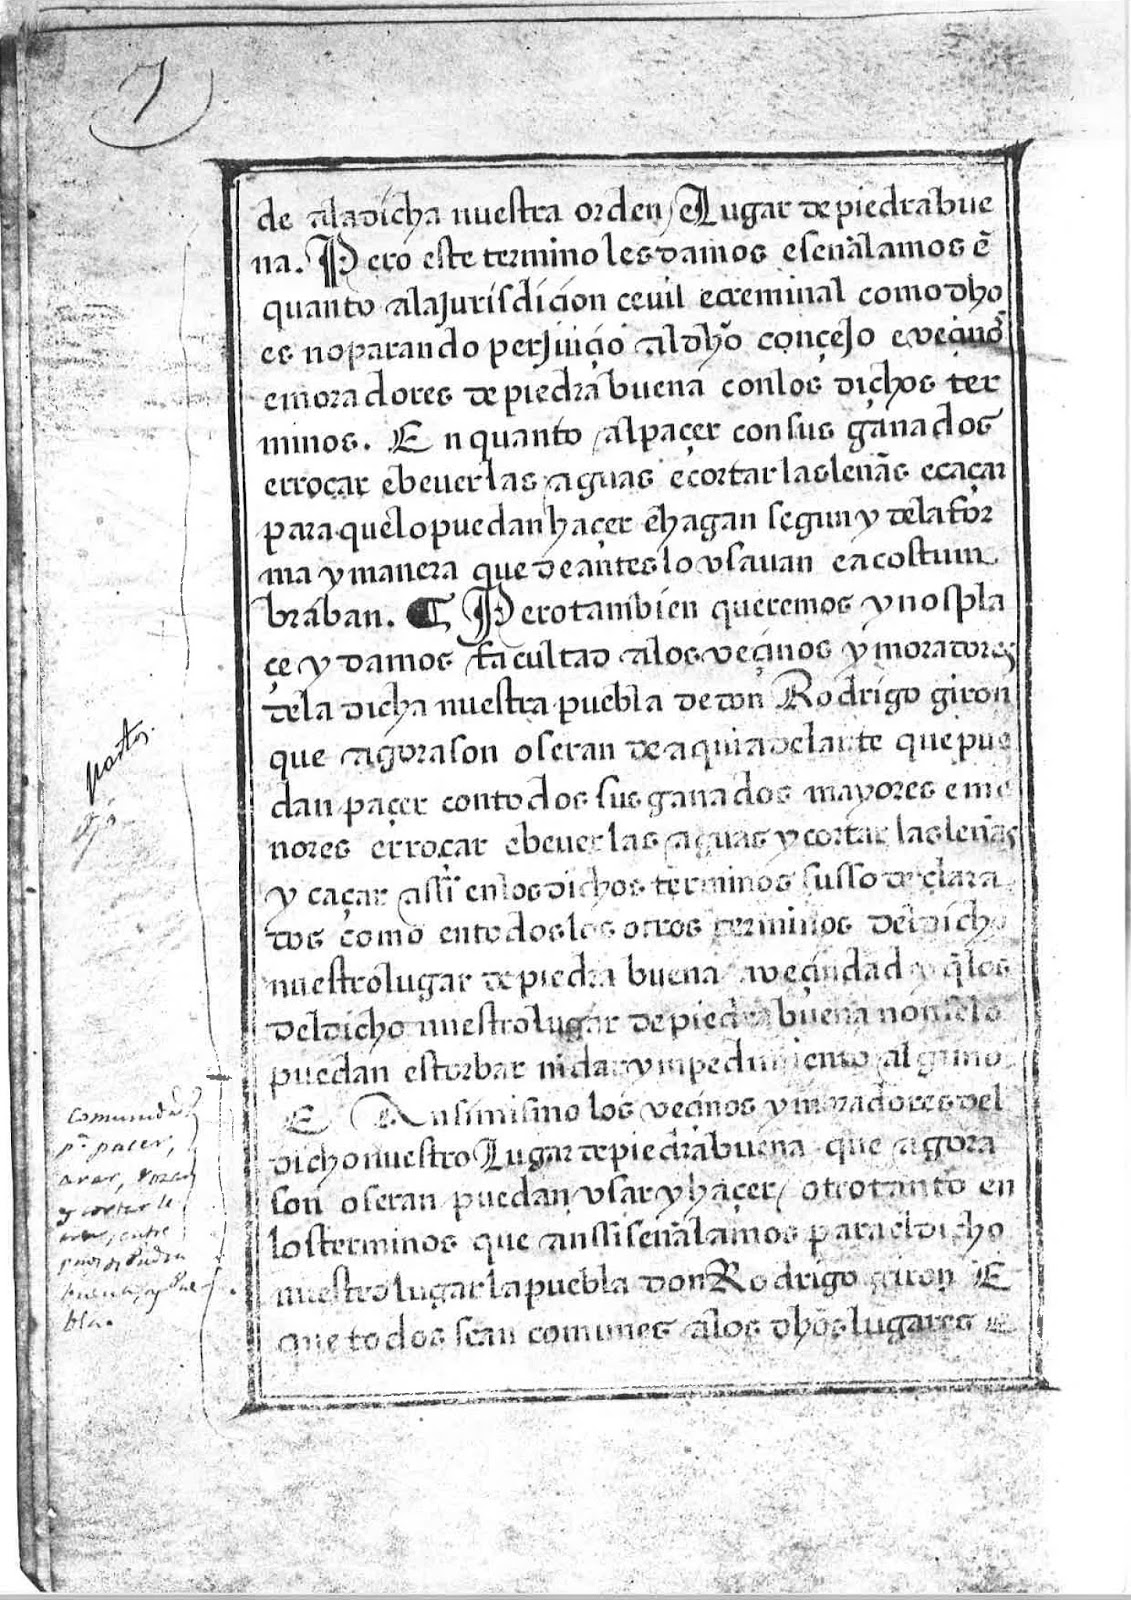 7
de aladicha nuestra orden e Lugar de piedrabue
na. Pero este termino les damos e señalamos ē
quanto ala Jurisdicion ceuil ecreminal como dho
es no parando perJuiçio al dhõ conçeJo e veçinos
emoradores de piedrabuena con los dichos ter
minos. En quanto al paçer con sus ganados
erroçar ebeuer las aguas e cortar las leñas e caçar
para que lo puedan haçer e hagan segun y de la for
ma y manera que de antes lo vsauan e acostum
braban. Pero tambien queremos y nos pla
çe y damos facultad a los veçinos y moradores
de la dicha nuestra puebla de don Rodrigo giron
que agora son o seran de aqui adelante que pue
dan paçer con todos sus ganados mayores e me
nores erroçar ebeuer las aguas y cortar las leñas
y caçar assi en los dichos terminos susso declara
dos como en todos los otros terminos del dicho
nuestro lugar de piedra buena a veçindad y q̃ los
del dicho nuestro lugar de piedra buena non se lo
puedan estorbar ni dar ympedimiento alguno
E Ansimismo los veçinos y moradores del
dicho nuestro Lugar de piedrabuena que agora
son o seran puedan vsar y haçer otro tanto en
los terminos que anssi señalamos para el dicho
nuestro lugar la puebla don Rodrigo giron E
que todos sean comunes a los dhos lugares E
pastos.
comunidad
pª pacer,
arar, rozar
y cortar le
entre
buena, y Pue
bla.